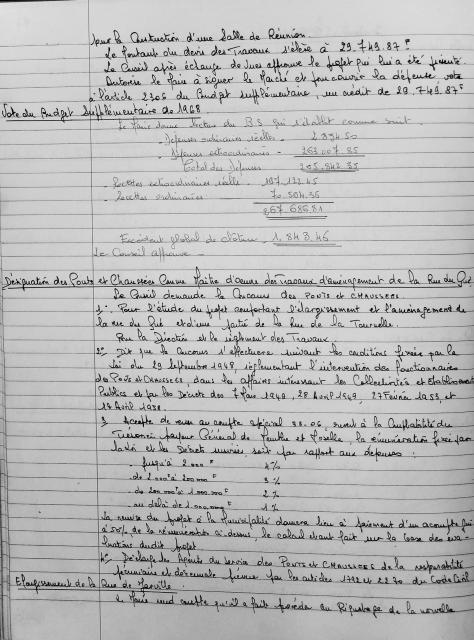 pour la Construction d'une Salle de Réunion.
Le Montant du devis des Travaux s'élève à 29.749.87 F
Le Conseil après échange de Vues approuve le projet qui lui a été présenté.
Autorise le Maire à signer le Marché et pour couvrir la défense, vote
à l'article 2306 du Budget Supplémentaire, un crédit de 29.749.87 F
Vote du Budget Supplémentaire de 1968
Le Maire donne lecture du B.S. qui s'établit comme suit
- Dépenses ordinaires réelles -
- Dépenses extraordinaires -
Total des Dépenses
- Recettes extraordinaires réelles - 197.122.45
- Recettes ordinaires 70.504.36
Excédent global de clôture. 1.843.46
Le Conseil approuve -
Désignation des Ponts et Chaussées Comme Maître d'œuvre des Travaux d'aménagement de la Rue du Gué
Le Conseil demande le Concours des PONTS et CHAUSSEES
1° Pour l'étude du projet comportant l'élargissement et l'aménagement de
la rue du Gué et d'une partie de la Rue de la Tournelle.
Pour la Direction et le règlement des Travaux.
2° Dit que le Concours s'effectuera suivant les conditions fixées par la
loi du 29 Septembre 1948, réglementant l'intervention des fonctionnaires
des PONTS et CHAUSSEES, dans les affaires intéressant les Collectivités et Etablissements
Publics et par les Décrets des 7 Mars 1949, 28 Avril 1949, 27 Février 1953, et
18 Avril 1958.
3 Accepte de verser au compte spécial ouvert à la Comptabilité du
Trésorier payeur Général de Meurthe et Moselle, la rémunération fixée par
la loi et les Décrets soit par rapport aux dépenses :
- jusqu'à 2.000 F 4%
- de 2.000 à 200.000 F 3%
- de 200.000 à 1.000.000 F 2%
- au delà de 1.000.000 F 1%
La remise du projet à la Municipalité donnera lieu à paiement d'un acompte
à 50% de la rémunération ci-dessus, le calcul étant fait sur la base des
dudit projet
4° Décharge les Agents du service des PONTS et CHAUSSEES de la responsabilité
pécuniaire et décennale prévue par les articles 1792 et 2270 du Code Civil
Elargissement de la Rue de Jarville
Le Maire rend compte qu'il a fait procéder au Piquetage de la nouvelle